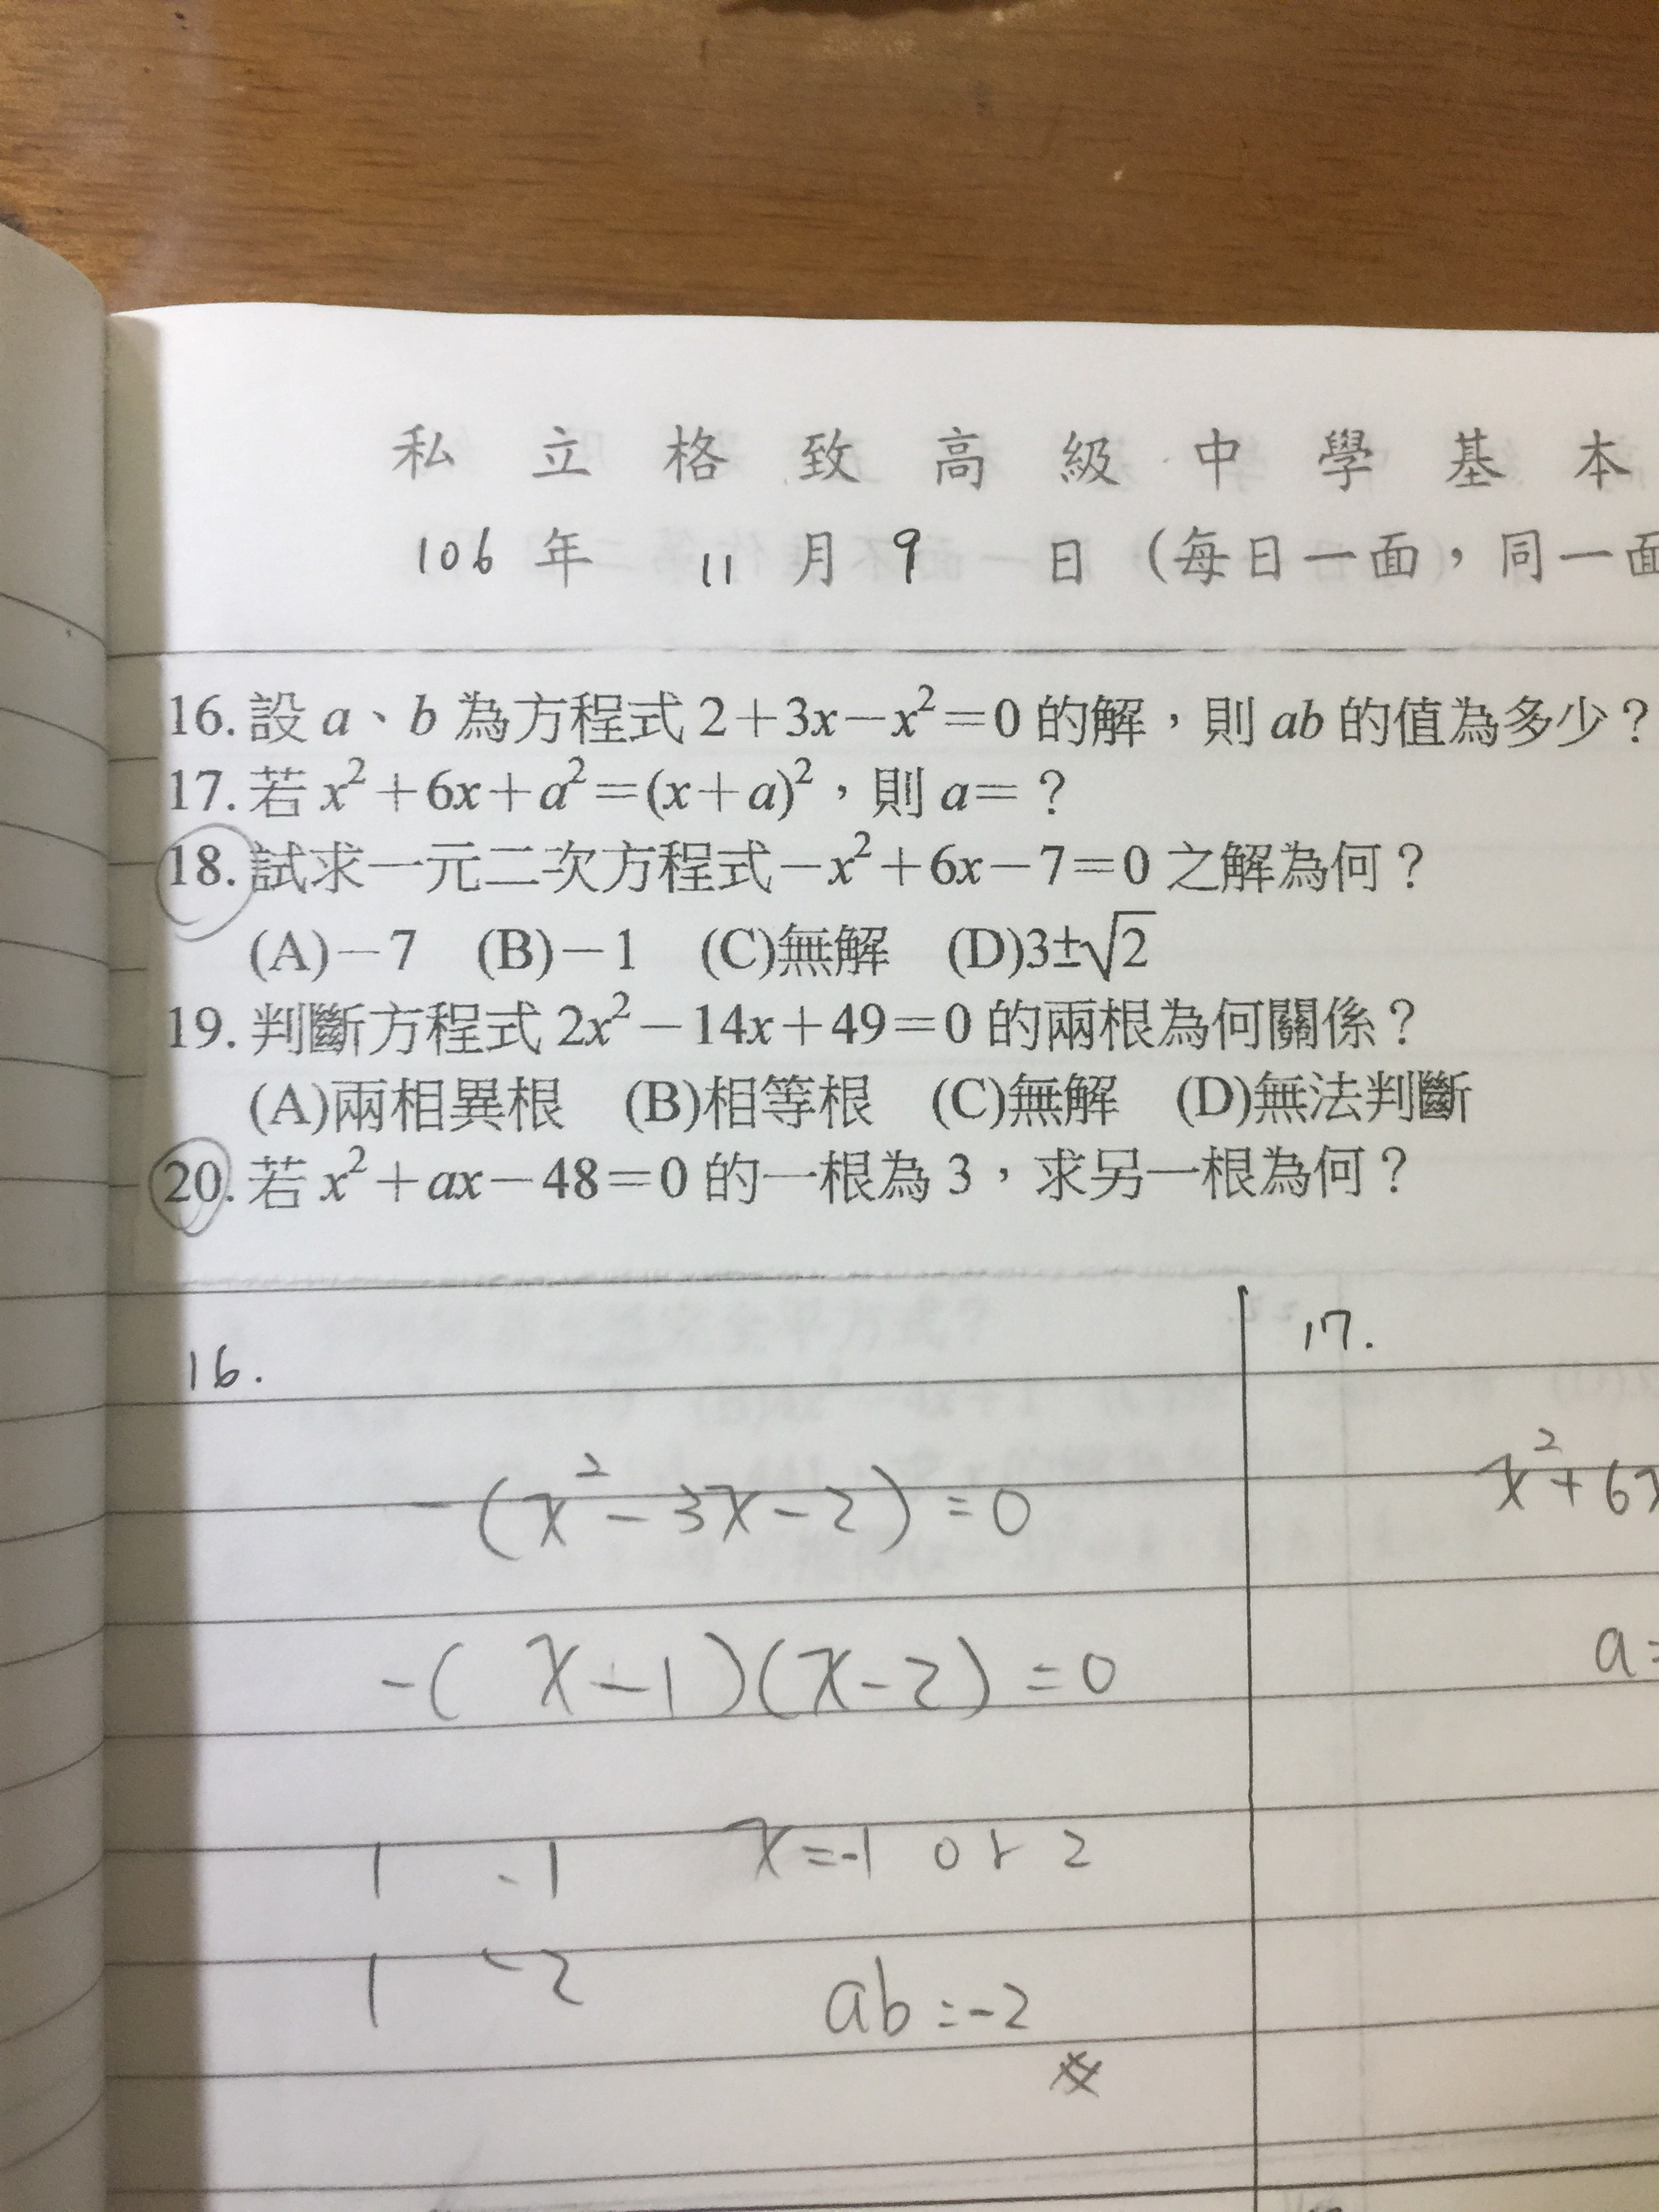 私立格致高級中學基本
106 年 11 月 9 日 (每日一面，同一面
16. 設 a、b 為方程式 2+3x−x²=0 的解，則 ab 的值為多少？
17. 若 x²+6x+a²=(x+a)²，則 a=？
18. 試求一元二次方程式−x²+6x−7=0 之解為何？
(A)−7 (B)−1 (C)無解 (D)3±√2
19. 判斷方程式 2x²−14x+49=0 的兩根為何關係？
(A)兩相異根 (B)相等根 (C)無解 (D)無法判斷
20. 若 x²+ax−48=0 的一根為 3，求另一根為何？
16.
-(x²-3x-2)=0
-(x-1)(x-2)=0
1 -1 x=-1 or 2
1 -2 ab=-2
17.
x²+6x
a=